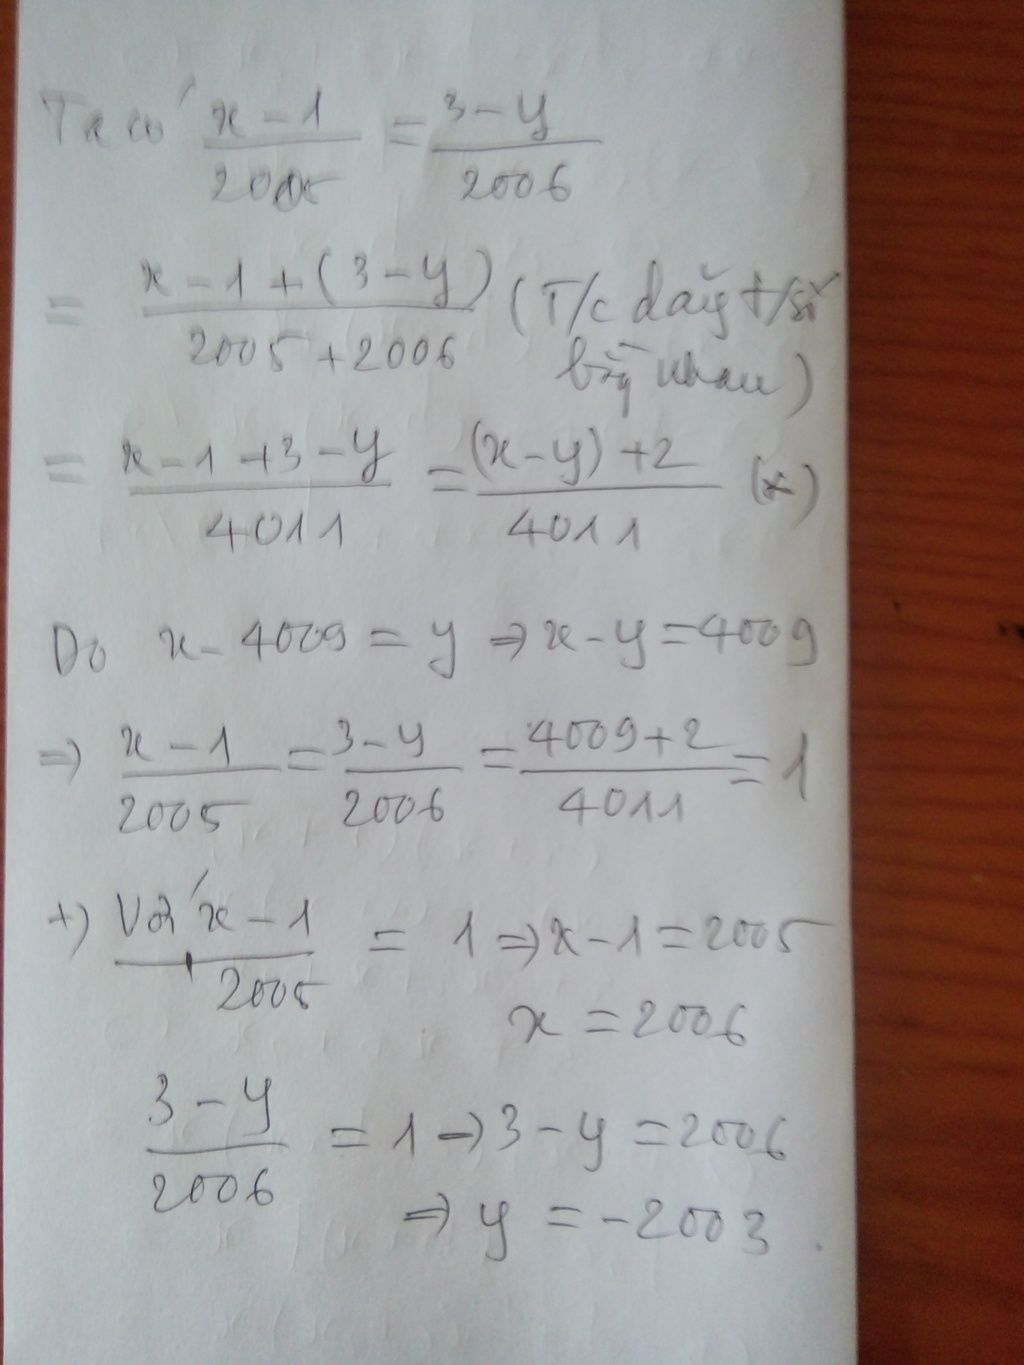 Ta có x-1/2005 = 3-y/2006
= x-1+(3-y)/2005+2006 (T/c dãy tỉ số
bằng nhau)
= x-1+3-y/4011 = (x-y)+2/4011 (*)
Do x-4009=y ⇒ x-y=4009
⇒ x-1/2005 = 3-y/2006 = 4009+2/4011 = 1
+) Với x-1/2005 = 1 ⇒ x-1=2005
x = 2006
3-y/2006 = 1 → 3-y=2006
⇒ y = -2003.